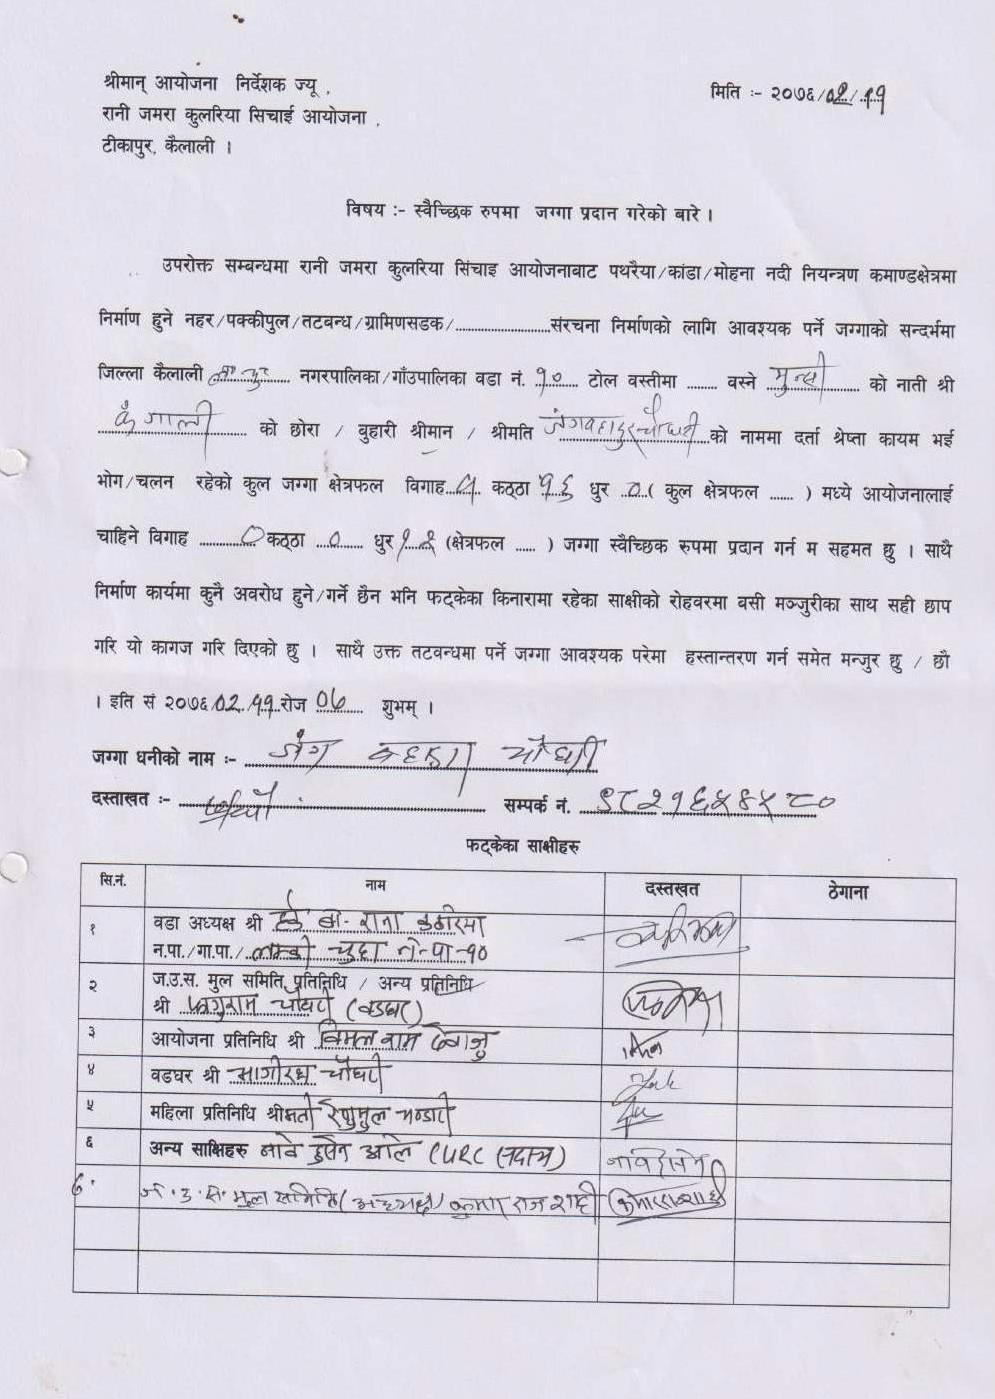 श्रीमान् आयोजना निर्देशक ज्यू ,
मिति :- २०७६/०२/११
रानी जमरा कुलरिया सिचाई आयोजना ,
टीकापुर, कैलाली ।
विषय :- स्वैच्छिक रुपमा जग्गा प्रदान गरेको बारे ।
उपरोक्त सम्बन्धमा रानी जमरा कुलरिया सिंचाइ आयोजनाबाट पथरैया/कांडा/मोहना नदी नियन्त्रण कमाण्डक्षेत्रमा
निर्माण हुने नहर/पक्कीपुल/तटबन्ध/ग्रामिणसडक/..........................संरचना निर्माणको लागि आवश्यक पर्ने जग्गाको सन्दर्भमा
जिल्ला कैलाली नगरपालिका/गाँउपालिका वडा नं. १० टोल वस्तीमा ........ वस्ने मुन्सी को नाती श्री
कंगाली को छोरा / बुहारी श्रीमान / श्रीमति जंगवहादुर चौधरी को नाममा दर्ता श्रेष्ता कायम भई
भोग/चलन रहेको कुल जग्गा क्षेत्रफल विगाह कठ्ठा १६ धुर ० ( कुल क्षेत्रफल ...... ) मध्ये आयोजनालाई
चाहिने विगाह ० कठ्ठा ० धुर (क्षेत्रफल ...... ) जग्गा स्वैच्छिक रुपमा प्रदान गर्न म सहमत छु । साथै
निर्माण कार्यमा कुनै अवरोध हुने/गर्ने छैन भनि फट्केका किनारामा रहेका साक्षीको रोहवरमा बसी मञ्जुरीका साथ सही छाप
गरि यो कागज गरि दिएको छु । साथै उक्त तटवन्धमा पर्ने जग्गा आवश्यक परेमा हस्तान्तरण गर्न समेत मन्जुर छु / छौ
। इति सं २०७६/०२/११ रोज ०७ शुभम् ।
जग्गा धनीको नाम :- जंग बहादुर चौधरी
दस्ताखत :- सम्पर्क नं. ९८२१६५४५८०
फट्केका साक्षीहरु
सि.नं. नाम दस्तखत ठेगाना
१ वडा अध्यक्ष श्री राना कठरिया
न.पा./गा.पा./ लम्की चुहा न.पा-१०
२ ज.उ.स. मुल समिति प्रतिनिधि / अन्य प्रतिनिधि
श्री फागुराम चौधरी (वडघर)
३ आयोजना प्रतिनिधि श्री विमल राम
४ वडघर श्री चौधरी
५ महिला प्रतिनिधि श्रीमती भण्डारी
६ अन्य साक्षिहरु ओली
ज.उ.स. मुल समिति (अध्यक्ष) कुमार राज शाही